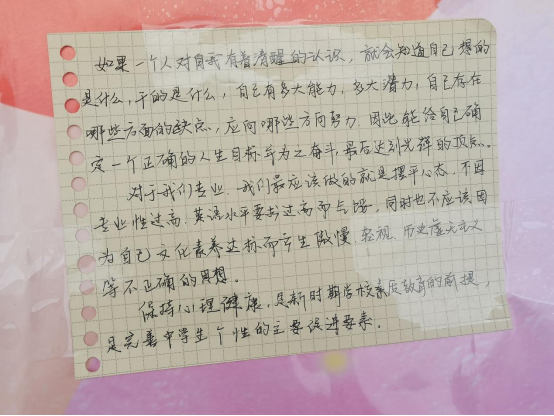 如果一个人对自我有着清醒的认识，就会知道自己想的
是什么，干的是什么，自己有多大能力，多大潜力，自己存在
哪些方面的缺点，应向哪些方向努力。因此能给自己确
定一个正确的人生目标并为之奋斗，最后达到光辉的顶点。
对于我们专业，我们最应该做的就是摆平心态，不因
专业性过高，英语水平要求过高而气馁，同时也不应该因
为自己文化素养达标而产生傲慢、轻视、历史虚无主义
等不正确的思想。
保持心理健康，是新时期学校素质教育的前提，
是完善中学生个性的主要促进要素。